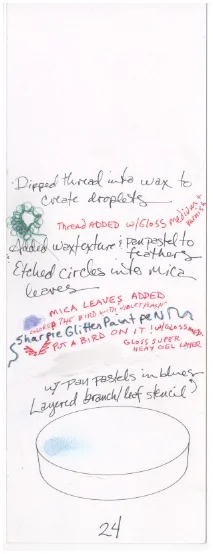 Dipped thread into wax to
create droplets
THREAD ADDED W/GLOSS MEDIUM &
VARNISH
Added wax texture & pan pastel to
feathers
Etched circles into mica
leaves
MICA LEAVES ADDED
COLORED THE BIRD WITH VIOLET
Sharpie Glitter Paint pen
PUT A BIRD ON IT! W/GLOSS
GLOSS SUPER
HEAVY GEL LAYER
w/ Pan Pastels in blues
Layered branch/leaf stencil
24